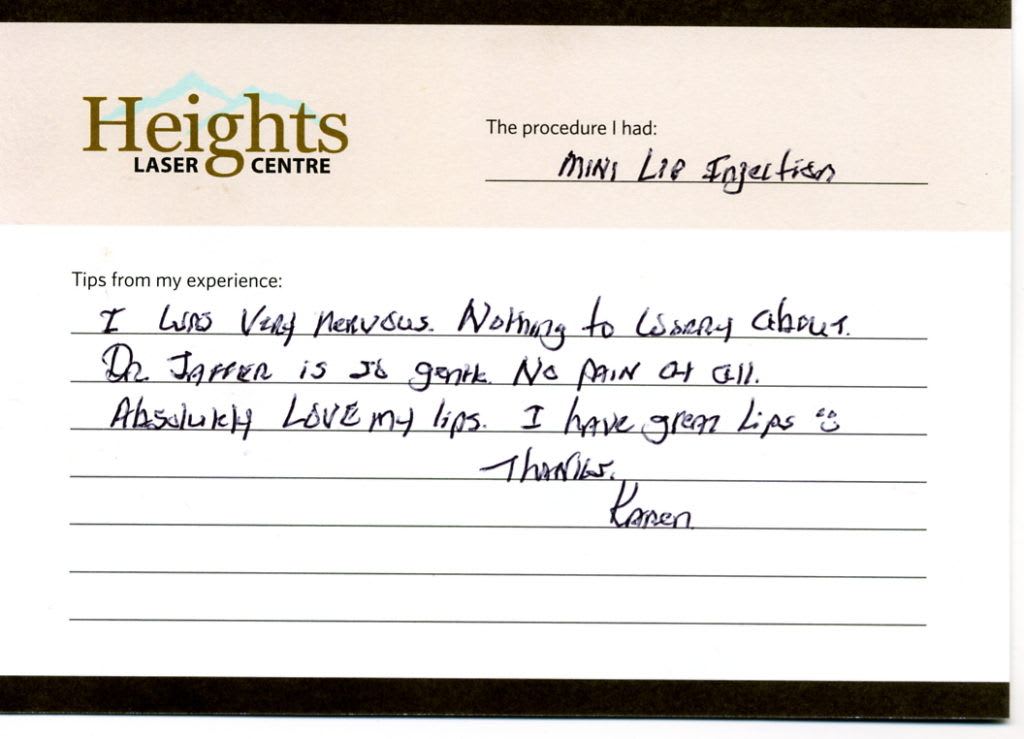 Heights
LASER CENTRE
The procedure I had:
Mini Lip Injection
Tips from my experience:
I was very nervous. Nothing to worry about.
Dr Jaffer is so gentle. No pain at all.
Absolutely LOVE my lips. I have great Lips
Thanks.
Karen